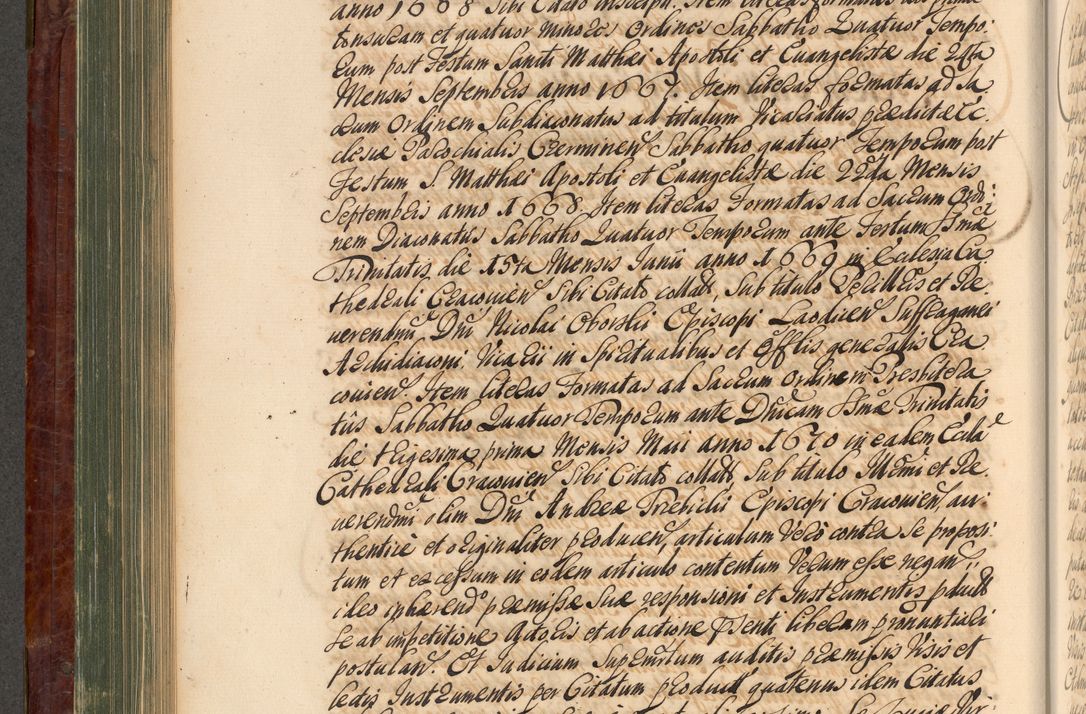 anno 1668 Sibi Citato inscript. Item literas formatas ad prima
tonsuram et quatuor minores Ordines Sabbatho Quatuor Tempo-
rum post Festum Sancti Matthæi Apostoli et Euangelistæ die 24ta
Mensis Septembris anno 1667. Item literas formatas ad Sa
crum Ordinem Subdiaconatus ad titulum Vicariatus prædictæ Ec-
clesiæ Parochialis Czerminen Sabbatho quatuor Temporum post
Festum S. Matthæi Apostoli et Euangelistæ die 22da Mensis
Septembris anno 1668 Item literas Formatas ad Sacrum Ordi:
nem Diaconatus Sabbatho Quatuor Temporum ante Festum Ssmæ
Trinitatis die 15ta Mensis Junii anno 1669 in Ecclesia Ca
thedrali Cracouien Sibi Citato collats, Sub titulo Perillris et Re
uerendmi Dni Nicolai Oborski Episcopi Laodicen Suffraganei
Archidiaconi, Vicarii in Spiritualibus et Offlis generalis Cra
couien. Item literas Formatas ad Sacrum Ordinem Presbitera
tus Sabbatho Quatuor Temporum ante Dnicam Ssmæ Trinitatis
die trigesima prima Mensis Maii anno 1670 in eadem Eccla
Cathedrali Cracouien Sibi Citato collats, Sub titulo Illmi et Re
uerendmi olim Dni Andreæ Trzebicki Episcopi Cracouien, au:
thentice et originaliter producen, articulum Vero contra se proposi
tum et excessum in eodem articulo contentum Verum esse negan
ideo inhærend præmissæ suæ responsioni et Instrumentis pduct
se ab impetitione Actoris et ab actione Psenti liberam pronuntiari
postulan. Et Judicium Supmum auditis præmissis Visis et
lectis Instrumentis per Citatum product quatenus idem Citatus